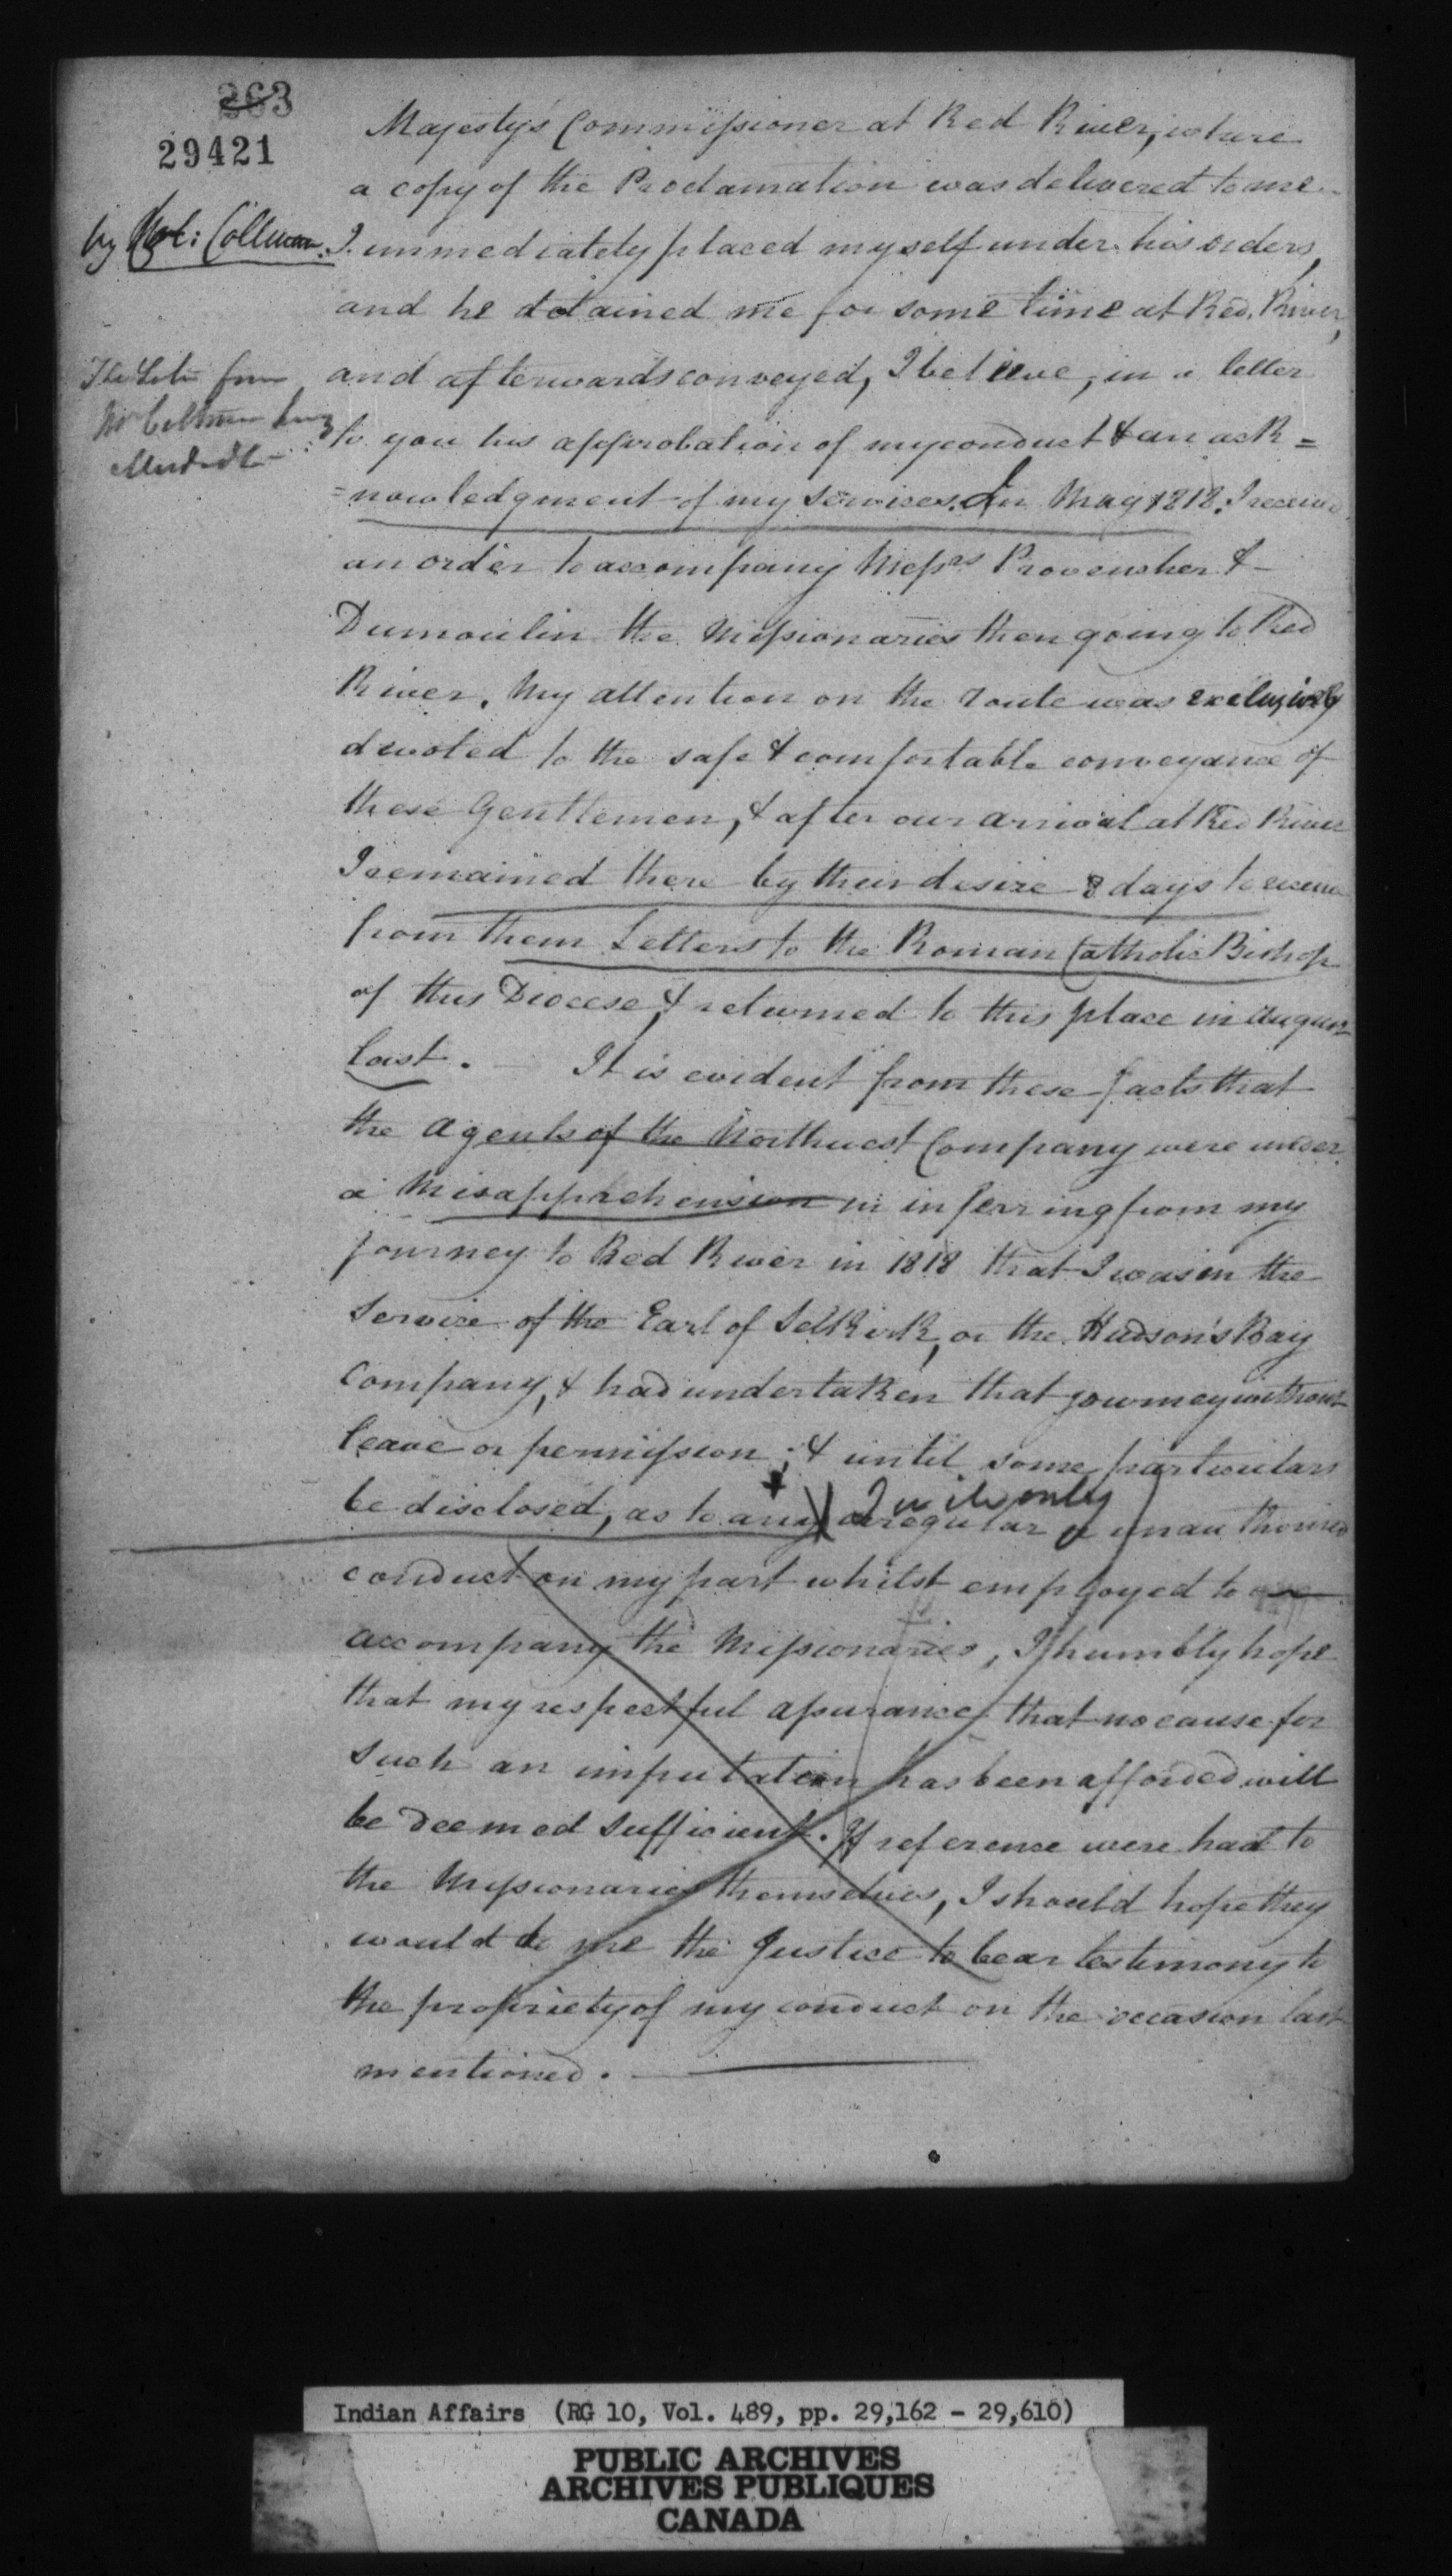 263
29421
Majesty's Commissioner at Red River, where
a copy of the Proclamation was delivered to me
by Coltman. I immediately placed myself under his orders,
and he detained me for some time at Red River,
and afterwards conveyed, I believe, in a letter
The Letter from
Mr Coltman
to you his approbation of my conduct & an ack=
=nowledgment of my services. In May 1818. I receive
an order to accompany Messrs Provencher &
Dumoulin the Missionaries then going to Red
River. My attention on the route was exclusively
devoted to the safe & comfortable conveyance of
these Gentlemen, & after our arrival at Red River
I remained there by their desire 8 days to receive
from them Letters to the Roman Catholic Bishop
of this Diocese, & returned to this place in August
last. It is evident from these facts that
the Agents of the Northwest Company were under
a Misapprehension in inferring from my
journey to Red River in 1818 that I was in the
Service of the Earl of Selkirk, or the Hudson's Bay
Company, & had undertaken that journey without
leave or permission; & until some particulars
be disclosed, as to any irregular or unauthorised
conduct on my part whilst employed to
accompany the Missionaries, I humbly hope
that my respectful assurance that no cause for
such an imputation has been afforded will
be deemed sufficient. If reference were had to
the Missionaries themselves, I should hope they
would do me the Justice to bear testimony to
the propriety of my conduct on the occasion last
mentioned.
Indian Affairs (RG 10, Vol. 489, pp. 29,162 - 29,610)
PUBLIC ARCHIVES
ARCHIVES PUBLIQUES
CANADA